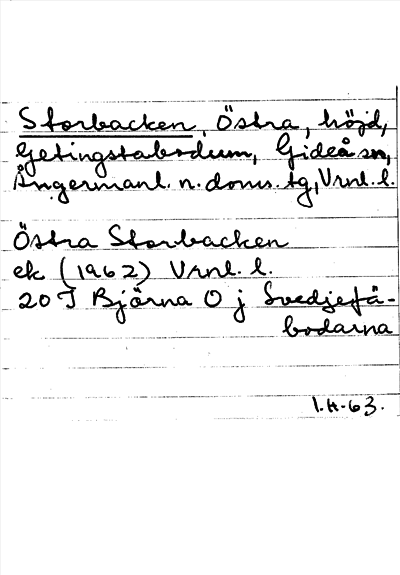 Storbacken, Östra, höjd,
Getingstabodum, Gideå sn,
Ångermanl. n. doms. tg, Vrnl. l.
Östra Storbacken
ek (1962) Vrnl. l.
20 I Björna O j Svedjefä-
bodarna
I.H-63.